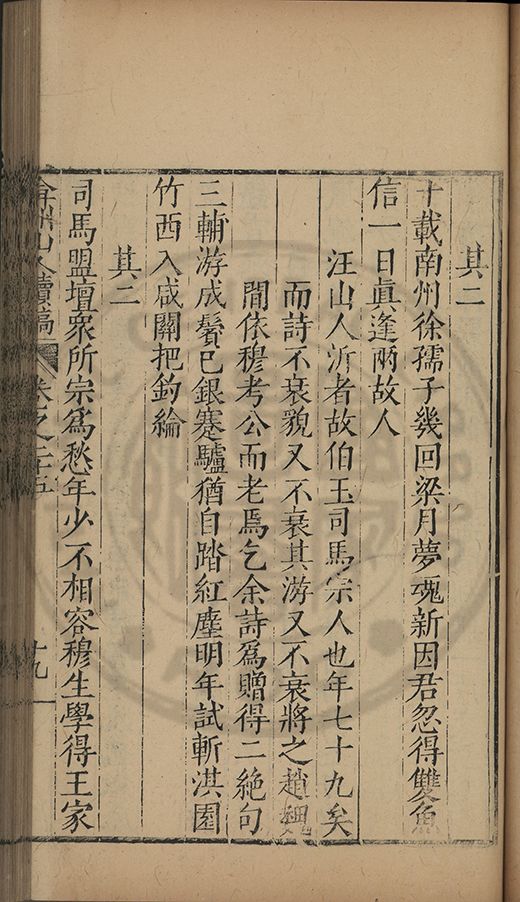 其二
十載南州徐孺子幾回梁月夢魂新因君忽得雙魚
信一日眞逢兩故人
汪山人沂者故伯玉司馬宗人也年七十九矣
而詩不衰貌又不衰其游又不衰將之趙魏
間依穆考公而老焉乞余詩爲贈得二絶句
三輔游成鬢已銀蹇驢猶自踏紅塵明年試斬淇園
竹西入咸關把釣綸
其二
司馬盟壇衆所宗爲愁年少不相容穆生學得王家
弇州山人續稿 卷之二十五 十九